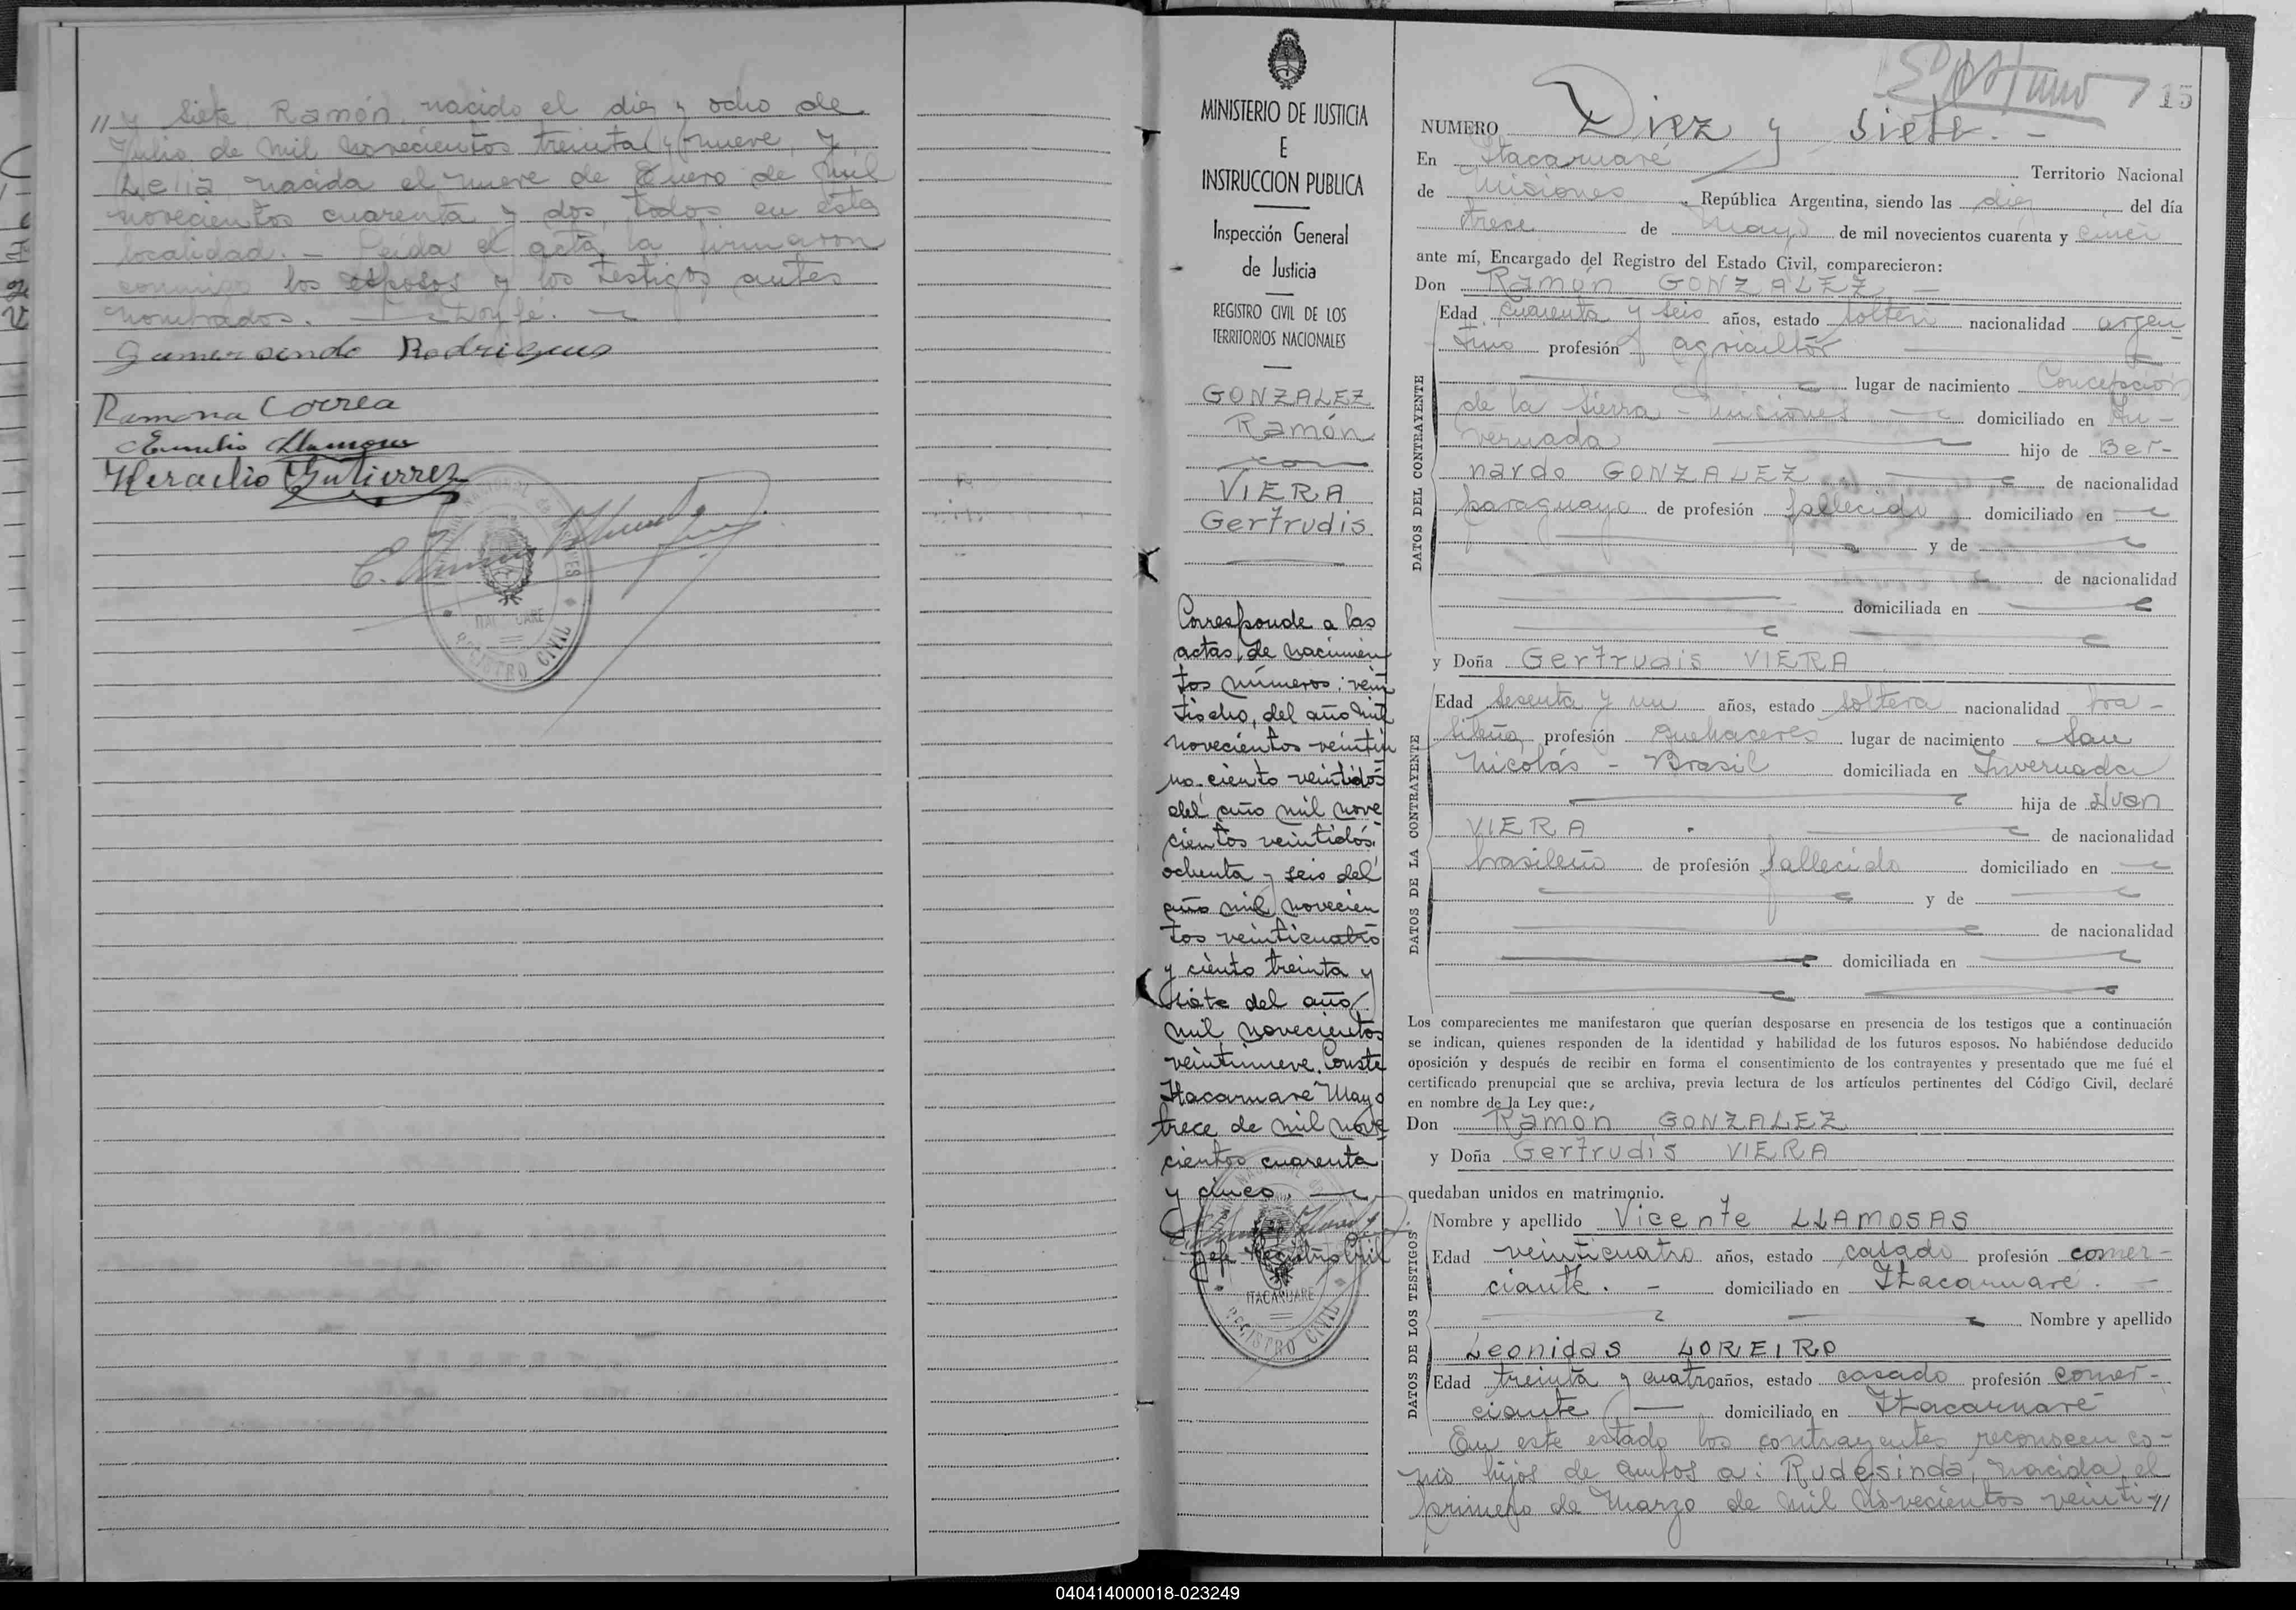 // y siete, Ramón, nacido el diez y ocho de
Julio de mil novecientos treinta y nueve, y
Delia nacida el nueve de Enero de mil
novecientos cuarenta y dos, todos en esta
localidad. — Leída el acta la firmaron
conmigo los esposos y los testigos antes
nombrados. — Doy fé. —
Gumersindo Rodrigues
Ramona Correa
Emilio Llamosas
Heraclio Gutierrez
REGISTRO CIVIL
MINISTERIO DE JUSTICIA
E
INSTRUCCION PUBLICA
Inspección General
de Justicia
REGISTRO CIVIL DE LOS
TERRITORIOS NACIONALES
GONZALEZ
Ramón
con
VIERA
Gertrudis
Corresponde a las
actas de nacimien
tos números: vein
tiocho, del año mil
novecientos veintiu
no, ciento veintidós
del año mil nove
cientos veintidós,
ochenta y seis del
año mil novecien
tos veinticuatro
y ciento treinta y
siete del año
mil novecientos
veintinueve. Conste
Itacaruaré Mayo
trece de mil nove
cientos cuarenta
y cinco. —
Jefe Registro Civil
ITACARUARE
REGISTRO CIVIL
15
NUMERO Diez y siete. -
En Itacaruaré Territorio Nacional
de Misiones, República Argentina, siendo las diez del día
trece de Mayo de mil novecientos cuarenta y cinco
ante mí, Encargado del Registro del Estado Civil, comparecieron:
Don Ramón GONZALEZ —
DATOS DEL CONTRAYENTE
Edad cuarenta y seis años, estado soltero nacionalidad argen
tino profesión agricultor
lugar de nacimiento Concepción
de la Sierra - Misiones domiciliado en In-
vernada hijo de Ber-
nardo GONZALEZ de nacionalidad
paraguayo de profesión fallecido domiciliado en
y de
de nacionalidad
domiciliada en
y Doña Gertrudis VIERA
DATOS DE LA CONTRAYENTE
Edad sesenta y un años, estado soltera nacionalidad bra-
sileña profesión quehaceres lugar de nacimiento San
Nicolás - Brasil domiciliada en Invernada
hija de Juan
VIERA de nacionalidad
brasileño de profesión fallecido domiciliado en
y de
de nacionalidad
domiciliada en
Los comparecientes me manifestaron que querían desposarse en presencia de los testigos que a continuación
se indican, quienes responden de la identidad y habilidad de los futuros esposos. No habiéndose deducido
oposición y después de recibir en forma el consentimiento de los contrayentes y presentado que me fué el
certificado prenupcial que se archiva, previa lectura de los artículos pertinentes del Código Civil, declaré
en nombre de la Ley que:
Don Ramón GONZALEZ
y Doña Gertrudis VIERA
quedaban unidos en matrimonio.
DATOS DE LOS TESTIGOS
Nombre y apellido Vicente LLAMOSAS
Edad veinticuatro años, estado casado profesión comer-
ciante. - domiciliado en Itacaruaré. -
Nombre y apellido
Leonidas LOREIRO
Edad treinta y cuatro años, estado casado profesión comer-
ciante domiciliado en Itacaruaré
En este estado los contrayentes reconocen co-
mo hijos de ambos a: Rudesinda, nacida el
primero de Marzo de mil novecientos veinti-//
040414000018-023249